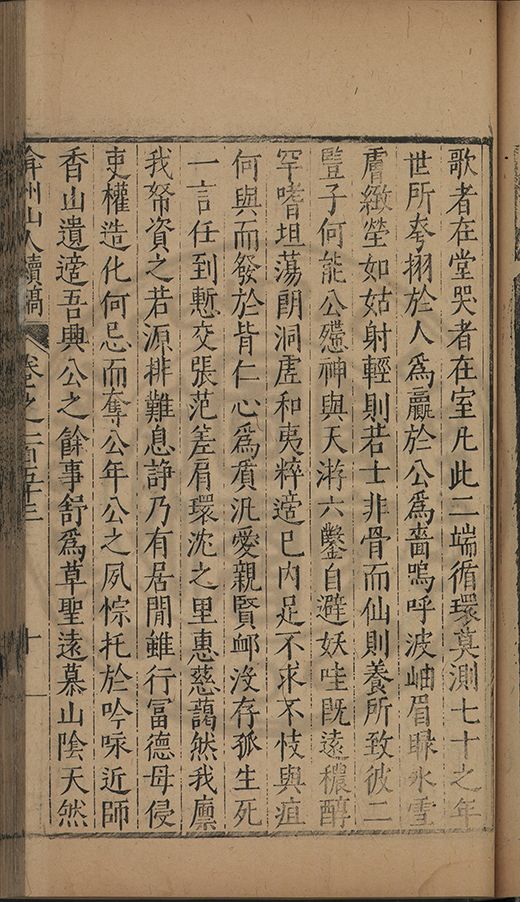 歌者在堂哭者在室凡此二端循環莫測七十之年
世所夸詡於人為贏於公為嗇嗚呼波岫眉睩氷雪
膚緻瑩如姑射輕則若士非骨而仙則養所致彼二
豎子何能公殢神與天游六鑿自避妖哇既遠穠醇
罕嗜坦蕩朗洞虗和夷粹適已內足不求不忮與疽
何與而發於背仁心為質汎愛親賢卹沒存孤生死
一言任到慙交張范差肩環沈之里惠慈藹然我廪
我帑資之若源排難息諍乃有居閒雖行冨德毋侵
吏權造化何忌而奪公年公之夙悰托於吟咏近師
香山遺適吾興公之餘事舒為草聖遠慕山陰天然
弇州山人續稿
卷之一百五十三
十